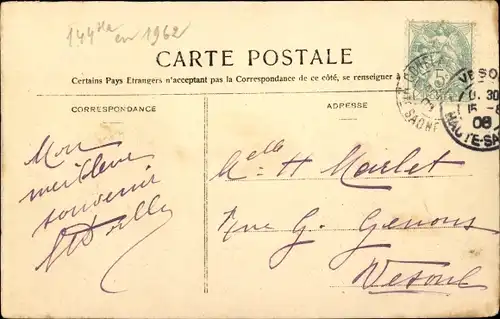 144 Ha
en 1962
CARTE POSTALE
Certains Pays Etrangers n'acceptant pas la Correspondance de ce côté, se renseigner à
CORRESPONDANCE
ADRESSE
Mon
meilleur
souvenir
Melle H Marlet
Rue G. Genoux
Vesoul
5
SAONE
VESO
15
08
HAUTE-SA